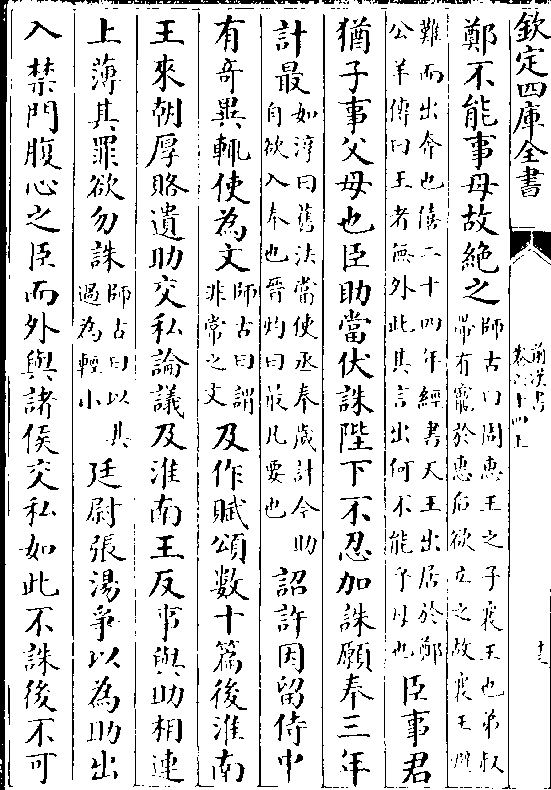 欽定四庫全書
前漢書
卷六十四上
十三
鄭不能事母故絶之師古曰周惠王之子襄王也弟叔帶有寵於惠后欲立之故襄王避
難而出奔也僖二十四年經書天王出居於鄭公羊傳曰王者無外此其言出何不能乎母也臣事君
猶子事父母也臣助當伏誅陛下不忍加誅願奉三年
計最如淳曰舊法當使丞奉歲計今助自欲入奉也晉灼曰最凡要也詔許因留侍中
有奇異輒使為文師古曰謂非常之文及作賦頌數十篇後淮南
王來朝厚賂遺助交私論議及淮南王反事與助相連
上薄其罪欲勿誅師古曰以其過為輕小廷尉張湯爭以為助出
入禁門腹心之臣而外與諸侯交私如此不誅後不可